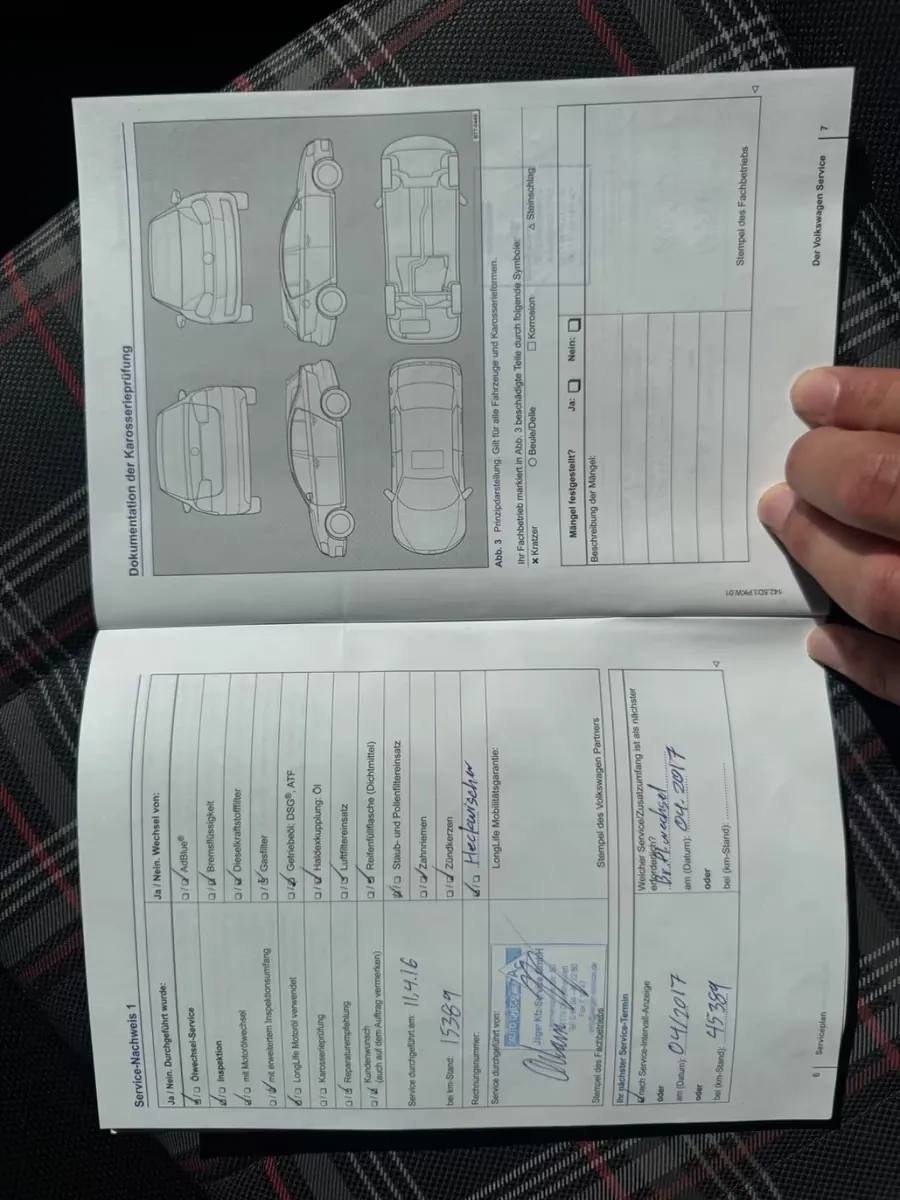 Service-Nachweis 1
Ja / Nein. Durchgeführt wurde:
Ölwechsel-Service
Inspektion
mit Motorölwechsel
mit erweitertem Inspektionsumfang
LongLife Motoröl verwendet
Karosserieprüfung
Reparaturempfehlung
Kundenwunsch
(auch auf dem Auftrag vermerken)
Service durchgeführt am: 11.4.16
bei km-Stand: 15389
Rechnungsnummer:
Service durchgeführt von:
Jäger Kfz-Service GmbH
Stempel des Fachbetriebs
Ja / Nein. Wechsel von:
AdBlue®
Bremsflüssigkeit
Dieselkraftstofffilter
Gasfilter
Getriebeöl: DSG®, ATF
Haldexkupplung: Öl
Luftfiltereinsatz
Reifenfüllflasche (Dichtmittel)
Staub- und Pollenfiltereinsatz
Zahnriemen
Zündkerzen
Heckwischer
LongLife Mobilitätsgarantie:
Stempel des Volkswagen Partners
Ihr nächster Service-Termin
nach Service-Intervall-Anzeige
oder
am (Datum): 04/2017
oder
bei (km-Stand): 45389
Welcher Service/Zusatzumfang ist als nächster
erforderlich?
Br.Fl.wechsel
am (Datum): 04.2017
oder
bei (km-Stand):
6
Serviceplan
Dokumentation der Karosserieprüfung
Abb. 3 Prinzipdarstellung: Gilt für alle Fahrzeuge und Karosserieformen.
Ihr Fachbetrieb markiert in Abb. 3 beschädigte Teile durch folgende Symbole:
× Kratzer ○ Beule/Delle □ Korrosion △ Steinschlag
Mängel festgestellt? Ja: Nein:
Beschreibung der Mängel:
Stempel des Fachbetriebs
142.5D3.PKW.01
Der Volkswagen Service
7